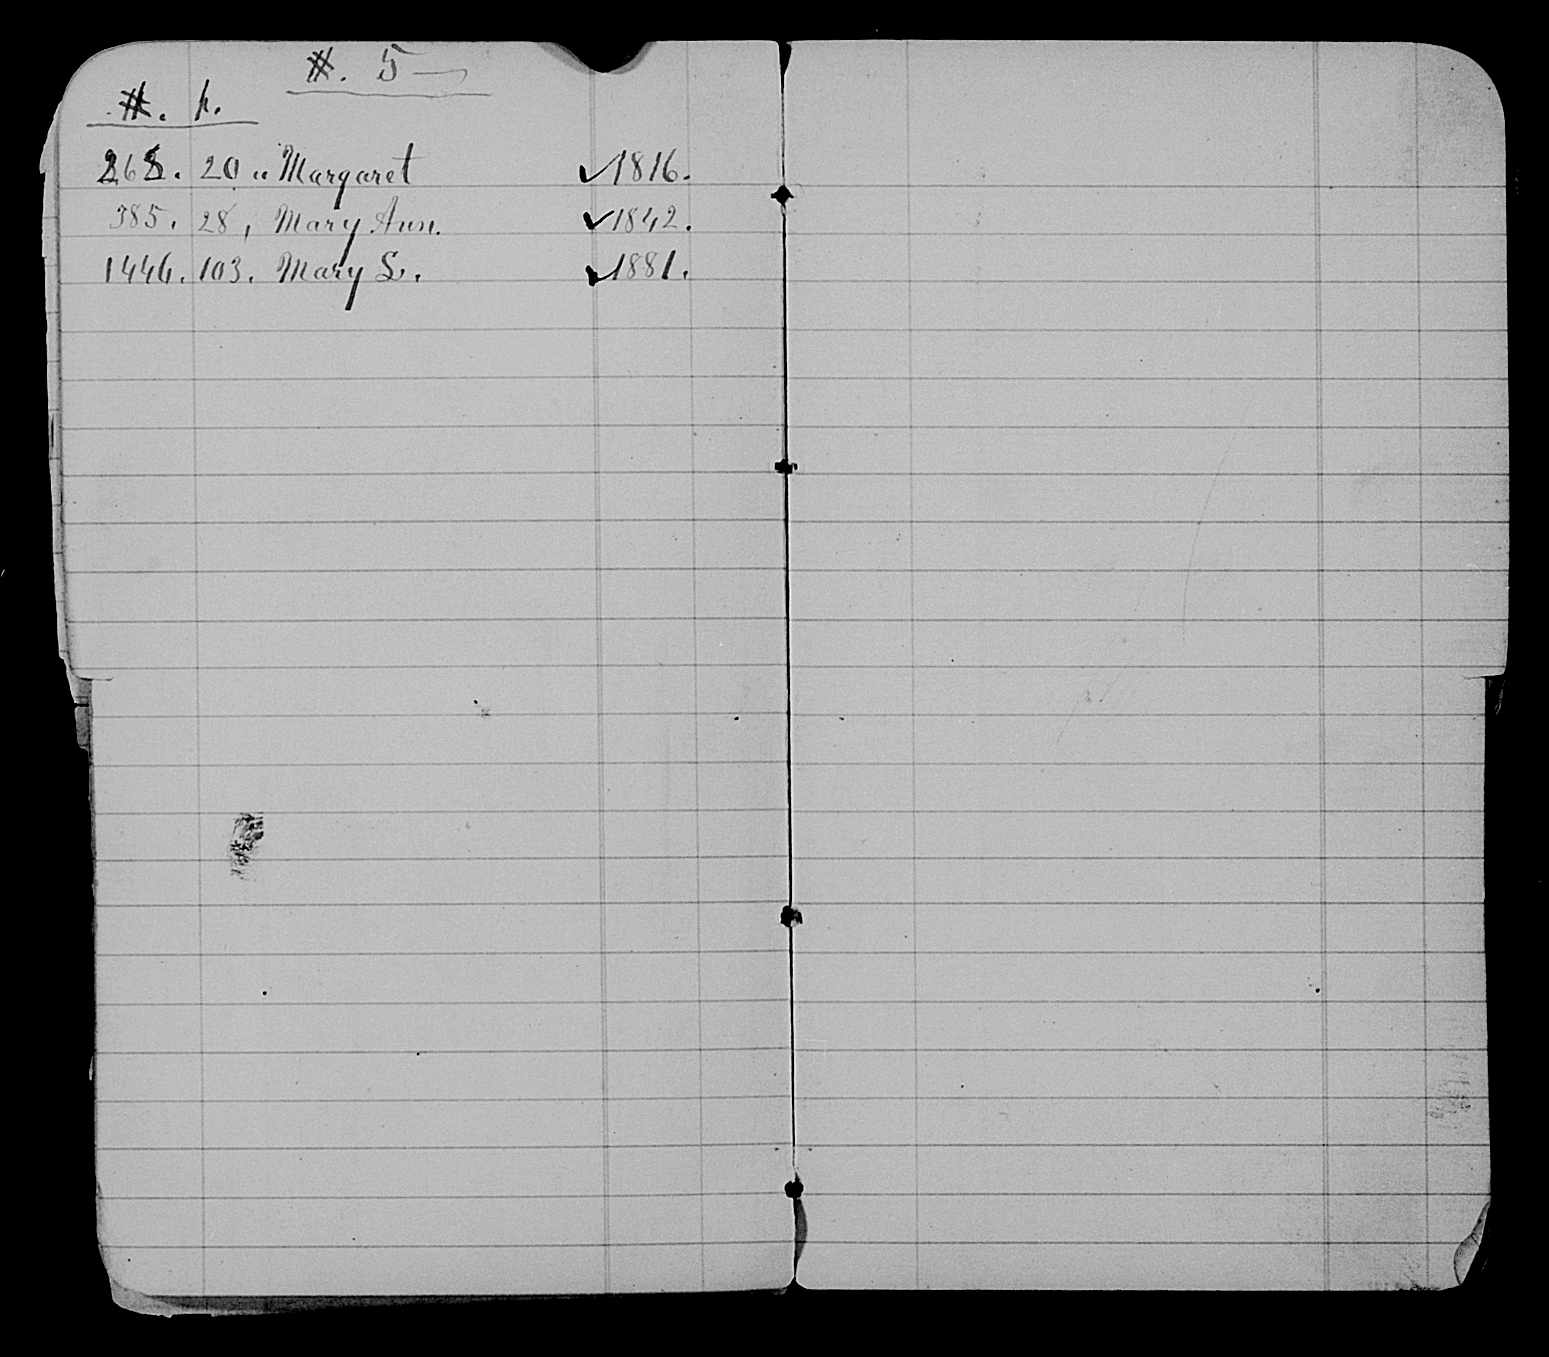 #. 5
#. p.
268. 20 " Margaret ✓1816.
385. 28, Mary Ann. ✓1842.
1446. 103. Mary L. ✓1881.